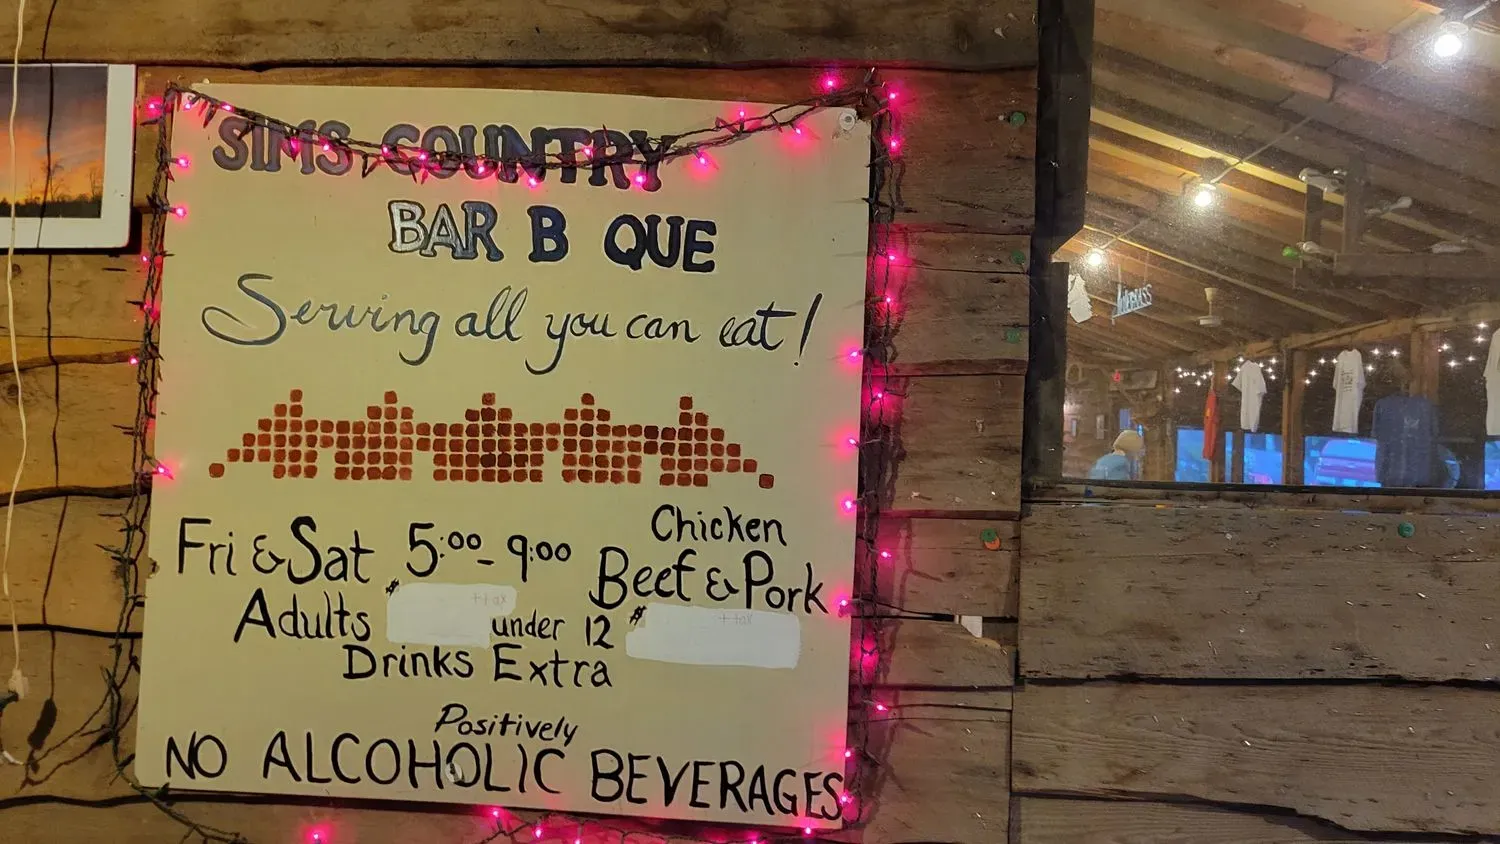 SIMS COUNTRY
BAR B QUE
Serving all you can eat!
Fri & Sat 5:00 - 9:00
Chicken
Beef & Pork
Adults $ + tax under 12 $ + tax
Drinks Extra
Positively
NO ALCOHOLIC BEVERAGES